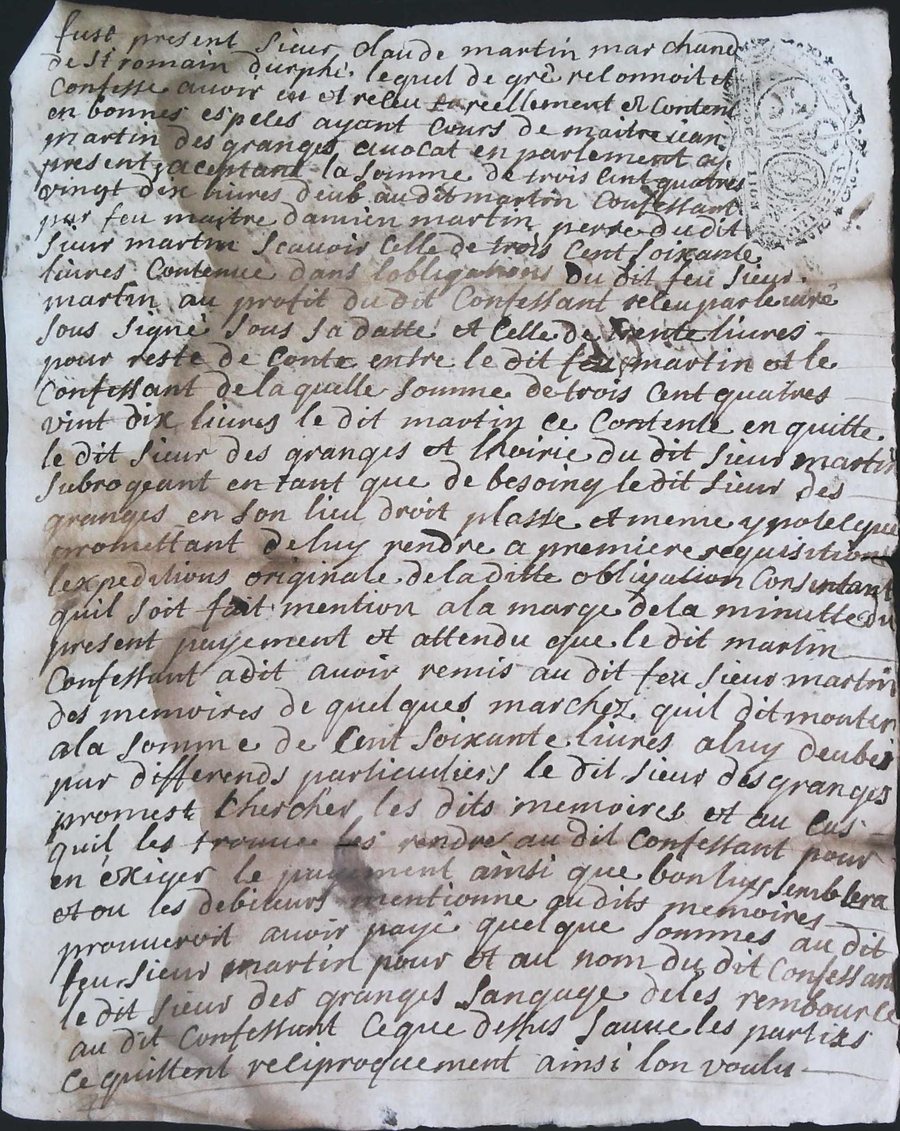 fust present sieur Claude martin marchand
de St romain durphé, lequel de gré reconnoit et
Confesse avoir eu et receu reellement et Content
en bonnes espeses ayant Cours de maitre jean
martin des granges avocat en parlement cy
present, aceptant la somme de trois Cent quatres
vingt dix livres deub au dit martin Confessant
par feu maitre damien martin perre du dit
sieur martin scavoir Celle de trois Cent soixante
livres Contenue dans lobligations du dit feu sieur
martin au profit du dit Confessant receu par le
sous signé sous sa datte et Celle de trente livres
pour reste de Conte entre le dit feu martin et le
Confessant de la quelle somme de trois Cent quatres
vint dix livres le dit martin ce Contente en quitte
le dit sieur des granges et lhoirie du dit sieur martin
subrogeant en tant que de besoing le dit sieur des
granges en son lieu droit plasse et meme ypoteque
promettant de luy rendre a premiere requisitions
lexpeditions originale de la ditte obligation Consentant
quil soit fait mention a la marge de la minutte du
present payement et attendu que le dit martin
Confessant a dit avoir remis au dit feu sieur martin
des memoires de quelques marchez quil dit monter
a la somme de Cent soixante livres a luy deubes
par differends particuliers le dit sieur des granges
promest Chercher les dits memoires et au Cas
quil les trouve les rendre au dit Confessant pour
en exiger le payement ainsi que bon luy semblera
et ou les debiteurs mentionne audits memoires
prouveroit avoir payé quelque sommes au dit
feu sieur martin pour et au nom du dit Confessant
le dit sieur des granges sangage de les rembource
au dit Confessant Ceque dessus sauve les parties
ce quittent reciproquement ainsi lon voulu